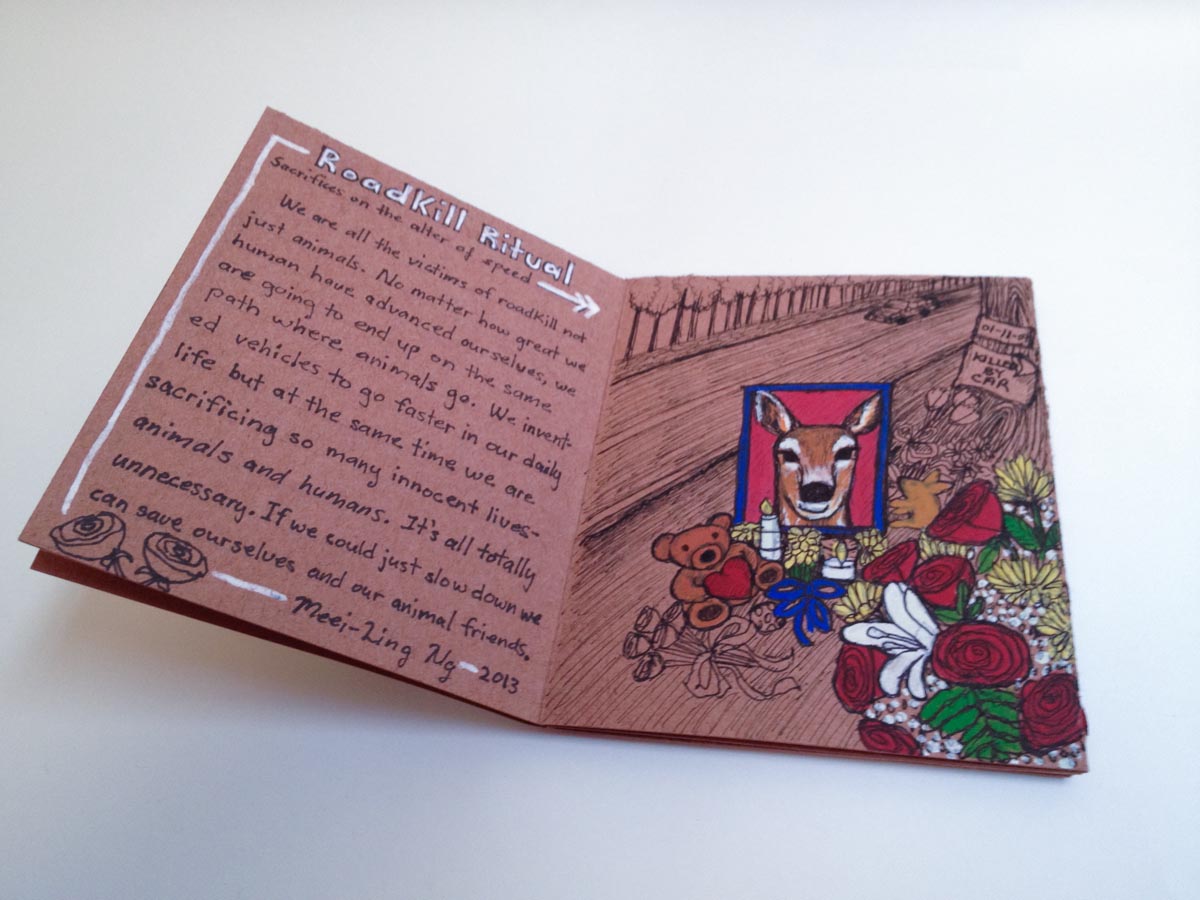 RoadKill Ritual
Sacrifices on the alter of speed
We are all the victims of roadkill not
just animals. No matter how great we
human have advanced ourselves, we
are going to end up on the same
path where animals go. We invent-
ed vehicles to go faster in our daily
life but at the same time we are
sacrificing so many innocent lives-
animals and humans. It's all totally
unnecessary. If we could just slow down we
can save ourselves and our animal friends.
Meei-Ling Ng - 2013
01-11-
KILLED
BY
CAR